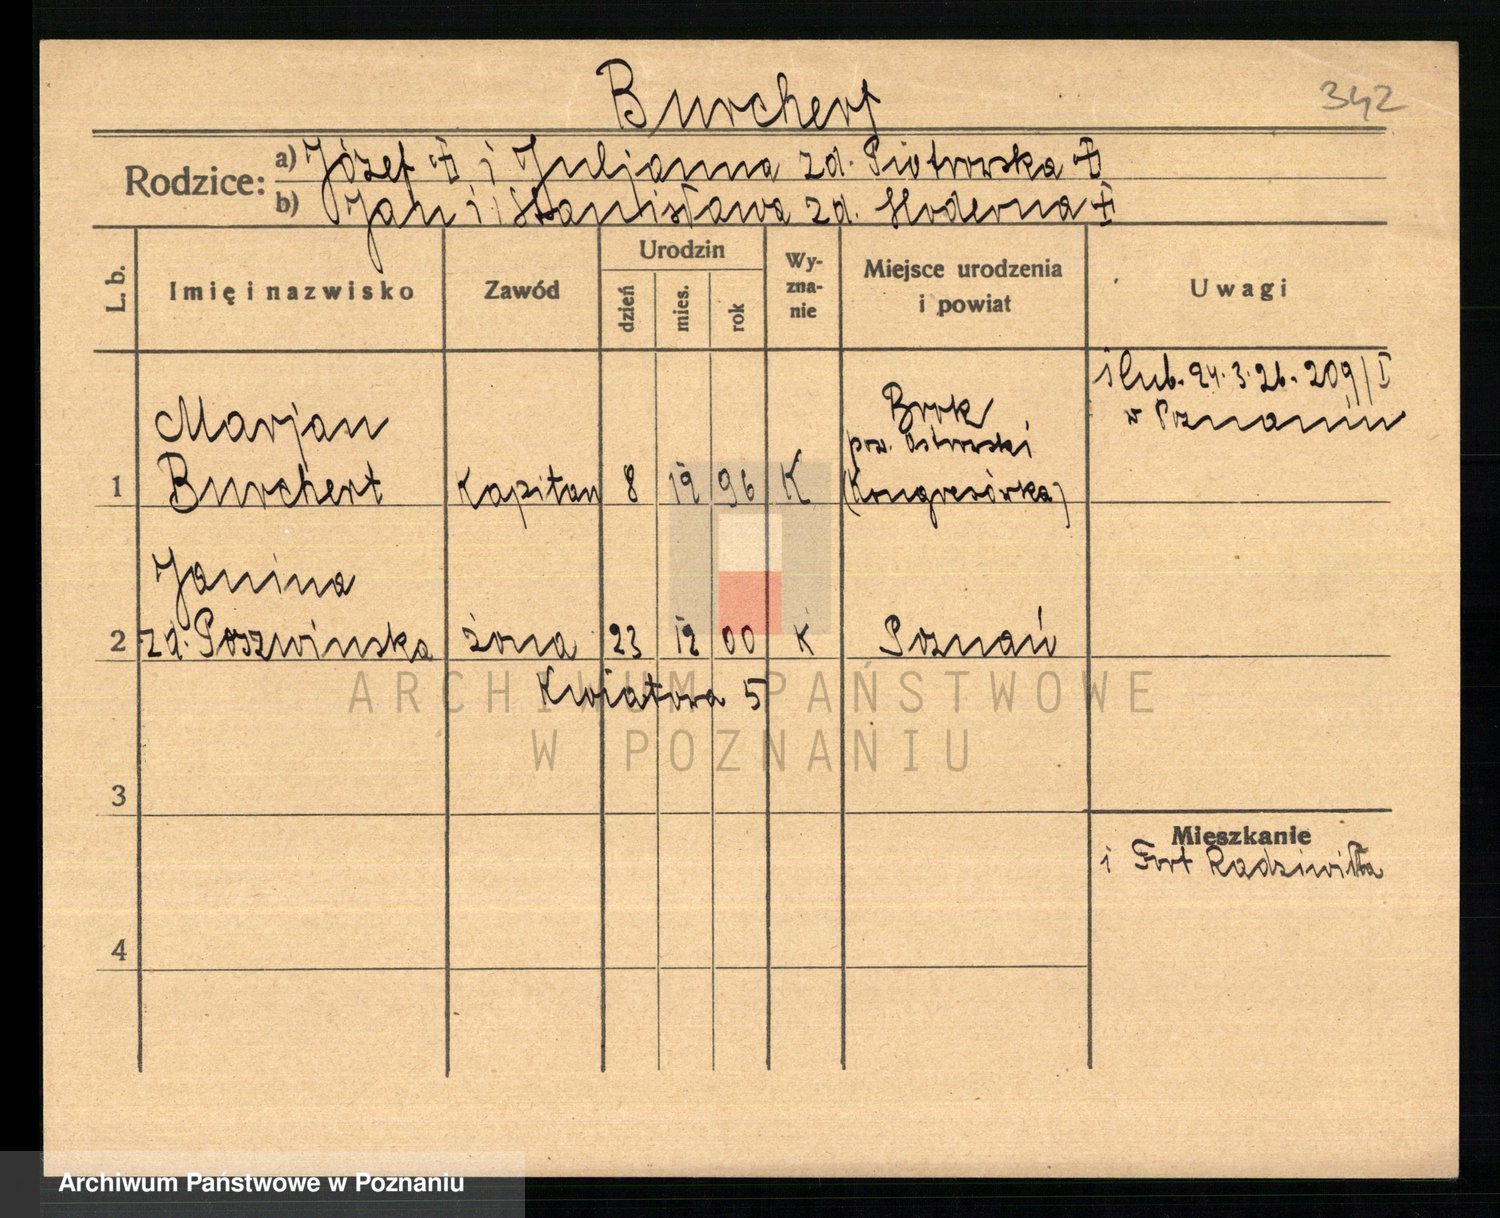 Burchert
342
Rodzice:
a) Józef ‡ i Juljanna zd. Piotrowska ‡
b) Jan i Stanisława zd. Hoderna ‡
L. b.
Imię i nazwisko
Zawód
Urodzin
dzień
mies.
rok
Wy-
zna-
nie
Miejsce urodzenia
i powiat
Uwagi
ślub. 24.3.26. 209/I
w Poznaniu
Marjan
Brok
pow. Ostrowski
1 Burchert Kapitan 8 12 96 K (Kongresówka)
Janina
2 zd. Poszwinska żona 23 12 00 K Poznań
Kwiatowa 5
ARCHIWUM PAŃSTWOWE
W POZNANIU
3
Mieszkanie
i Fort Radziwiłła
4
Archiwum Państwowe w Poznaniu